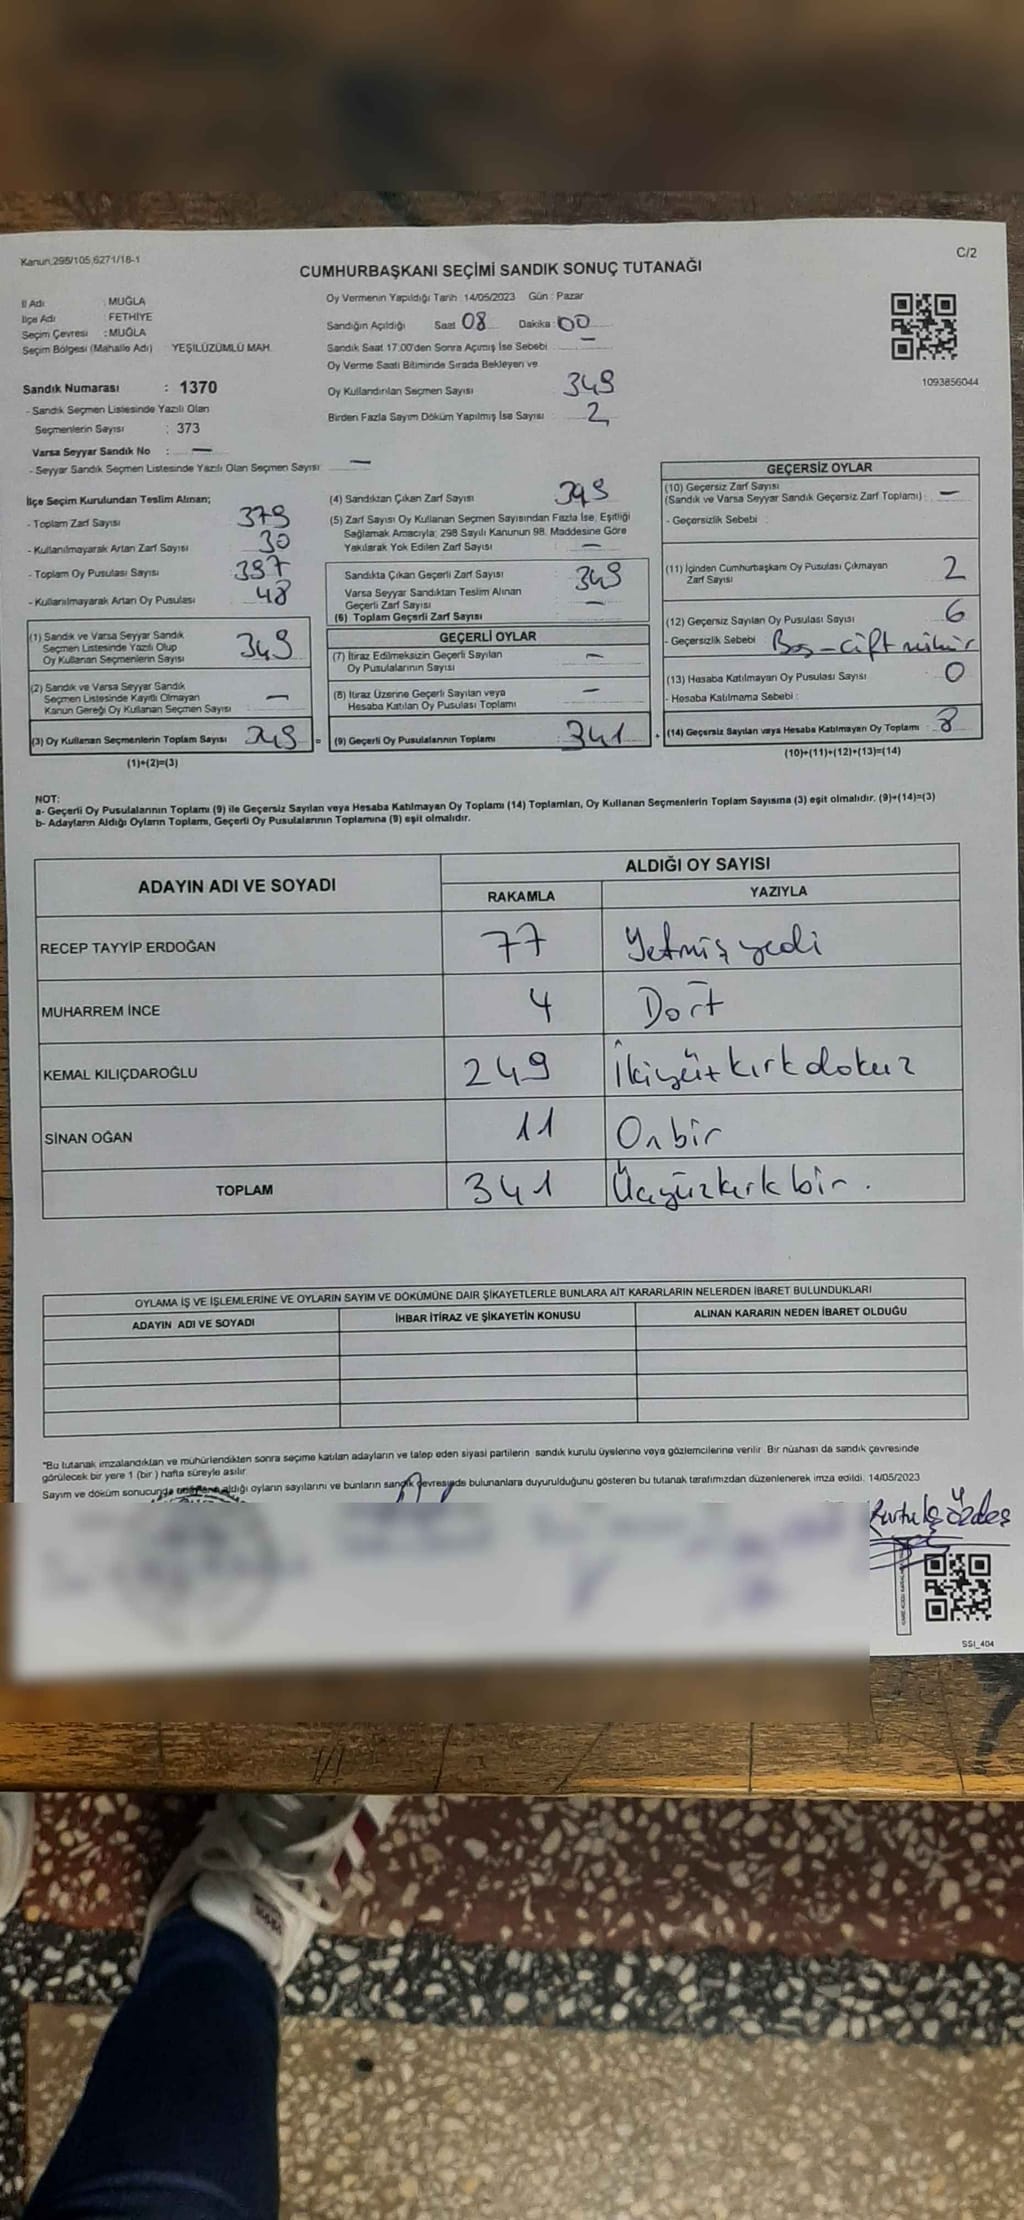 Kanun,298/105,6271/18-1
C/2
CUMHURBAŞKANI SEÇİMİ SANDIK SONUÇ TUTANAĞI
İl Adı : MUĞLA
İlçe Adı : FETHİYE
Seçim Çevresi : MUĞLA
Seçim Bölgesi (Mahalle Adı) YEŞİLÜZÜMLÜ MAH.
Sandık Numarası : 1370
- Sandık Seçmen Listesinde Yazılı Olan
Seçmenlerin Sayısı : 373
Varsa Seyyar Sandık No : —
- Seyyar Sandık Seçmen Listesinde Yazılı Olan Seçmen Sayısı —
Oy Vermenin Yapıldığı Tarih 14/05/2023 Gün : Pazar
Sandığın Açıldığı Saat 08 Dakika : 00
Sandık Saat 17.00'den Sonra Açımış İse Sebebi —
Oy Verme Saati Bitiminde Sırada Bekleyen ve
Oy Kullandırılan Seçmen Sayısı 349
Birden Fazla Sayım Döküm Yapılmış İse Sayısı 2
1093856044
İlçe Seçim Kurulundan Teslim Alınan;
- Toplam Zarf Sayısı 379
- Kullanılmayarak Artan Zarf Sayısı 30
- Toplam Oy Pusulası Sayısı 397
- Kullanılmayarak Artan Oy Pusulası 48
(1) Sandık ve Varsa Seyyar Sandık
Seçmen Listesinde Yazılı Olup
Oy Kullanan Seçmenlerin Sayısı 349
(2) Sandık ve Varsa Seyyar Sandık
Seçmen Listesinde Kayıtlı Olmayan
Kanun Gereği Oy Kullanan Seçmen Sayısı —
(3) Oy Kullanan Seçmenlerin Toplam Sayısı 349 =
(1)+(2)=(3)
(4) Sandıktan Çıkan Zarf Sayısı 349
(5) Zarf Sayısı Oy Kullanan Seçmen Sayısından Fazla İse, Eşitliği
Sağlamak Amacıyla; 298 Sayılı Kanunun 98. Maddesine Göre
Yakılarak Yok Edilen Zarf Sayısı —
Sandıkta Çıkan Geçerli Zarf Sayısı 349
Varsa Seyyar Sandıktan Teslim Alınan
Geçerli Zarf Sayısı —
(6) Toplam Geçerli Zarf Sayısı
GEÇERLİ OYLAR
(7) İtiraz Edilmeksizin Geçerli Sayılan
Oy Pusulalarının Sayısı —
(8) İtiraz Üzerine Geçerli Sayılan veya
Hesaba Katılan Oy Pusulası Toplamı —
(9) Geçerli Oy Pusulalarının Toplamı : 341 +
GEÇERSİZ OYLAR
(10) Geçersiz Zarf Sayısı
(Sandık ve Varsa Seyyar Sandık Geçersiz Zarf Toplamı) : —
- Geçersizlik Sebebi :
(11) İçinden Cumhurbaşkanı Oy Pusulası Çıkmayan
Zarf Sayısı 2
(12) Geçersiz Sayılan Oy Pusulası Sayısı 6
- Geçersizlik Sebebi Boş - çift mühür
(13) Hesaba Katılmayan Oy Pusulası Sayısı 0
- Hesaba Katılmama Sebebi :
(14) Geçersiz Sayılan veya Hesaba Katılmayan Oy Toplamı : 8
(10)+(11)+(12)+(13)=(14)
NOT:
a- Geçerli Oy Pusulalarının Toplamı (9) ile Geçersiz Sayılan veya Hesaba Katılmayan Oy Toplamı (14) Toplamları, Oy Kullanan Seçmenlerin Toplam Sayısına (3) eşit olmalıdır. (9)+(14)=(3)
b- Adayların Aldığı Oyların Toplamı, Geçerli Oy Pusulalarının Toplamına (9) eşit olmalıdır.
ADAYIN ADI VE SOYADI
ALDIĞI OY SAYISI
RAKAMLA YAZIYLA
RECEP TAYYİP ERDOĞAN 77 Yetmiş yedi
MUHARREM İNCE 4 Dört
KEMAL KILIÇDAROĞLU 249 İkiyüz kırk dokuz
SİNAN OĞAN 11 On bir
TOPLAM 341 Üçyüz kırk bir.
OYLAMA İŞ VE İŞLEMLERİNE VE OYLARIN SAYIM VE DÖKÜMÜNE DAİR ŞİKAYETLERLE BUNLARA AİT KARARLARIN NELERDEN İBARET BULUNDUKLARI
ADAYIN ADI VE SOYADI İHBAR İTİRAZ VE ŞİKAYETİN KONUSU ALINAN KARARIN NEDEN İBARET OLDUĞU
"Bu tutanak imzalandıktan ve mühürlendikten sonra seçime katılan adayların ve talep eden siyasi partilerin sandık kurulu üyelerine veya gözlemcilerine verilir. Bir nüshası da sandık çevresinde
görülecek bir yere 1 (bir) hafta süreyle asılır.
Sayım ve döküm sonucunda aldığı oyların sayılarını ve bunların sandık çevresinde bulunanlara duyurulduğunu gösteren bu tutanak tarafımızdan düzenlenerek imza edildi. 14/05/2023
SSI_404